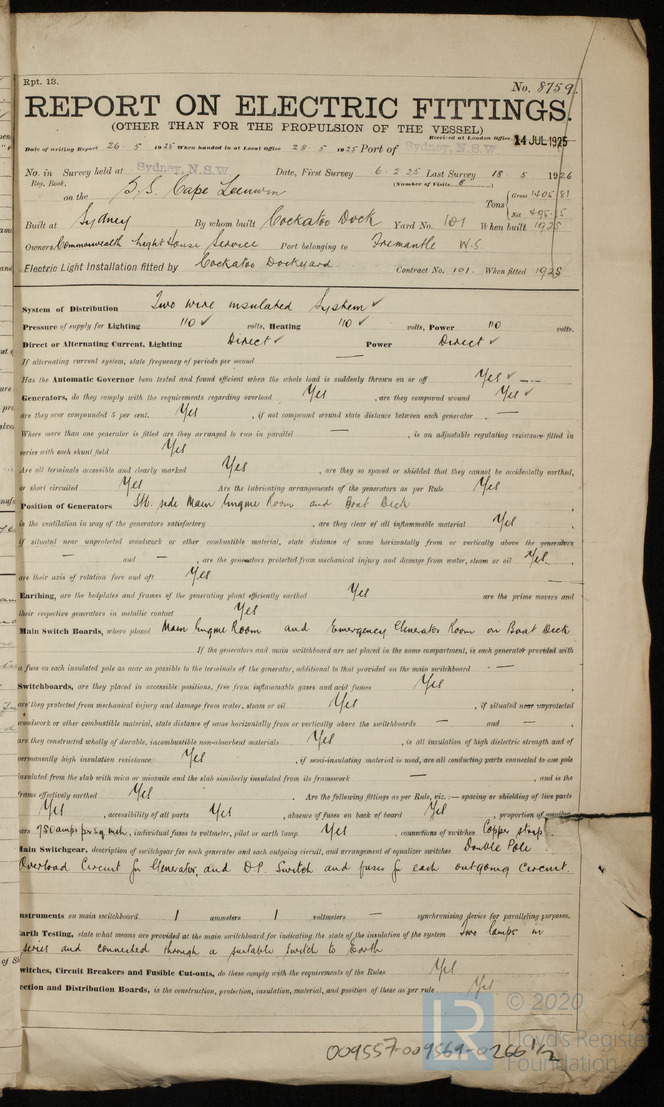 Rpt. 13.
No. 8759.
REPORT ON ELECTRIC FITTINGS.
(OTHER THAN FOR THE PROPULSION OF THE VESSEL)
Received at London Office 14 JUL 1925
Date of writing Report 26 - 5 1925 When handed in at Local Office 28 . 5 1925 Port of Sydney, N.S.W
No. in Survey held at Sydney, N.S.W Date, First Survey 6 - 2 25 Last Survey 18 . 5 1926
Reg. Book. (Number of Visits 8 )
on the S.S. Cape Leeuwin Tons { Gross 1405.81
Net 495.
Built at Sydney By whom built Cockatoo Dock Yard No. 101 When built 1925
Owners Commonwealth Light House Service Port belonging to Fremantle W.S
Electric Light Installation fitted by Cockatoo Dockyard Contract No. 101. When fitted 1925
System of Distribution Two wire insulated System ✓
Pressure of supply for Lighting 110 ✓ volts, Heating 110 ✓ volts, Power 110 volts.
Direct or Alternating Current, Lighting Direct ✓ Power Direct ✓
If alternating current system, state frequency of periods per second —
Has the Automatic Governor been tested and found efficient when the whole load is suddenly thrown on or off Yes ✓
Generators, do they comply with the requirements regarding overload Yes , are they compound wound Yes ✓
are they over compounded 5 per cent. Yes , if not compound wound state distance between each generator —
Where more than one generator is fitted are they arranged to run in parallel — , is an adjustable regulating resistance fitted in
series with each shunt field Yes
Are all terminals accessible and clearly marked Yes , are they so spaced or shielded that they cannot be accidentally earthed,
or short circuited Yes Are the lubricating arrangements of the generators as per Rule Yes
Position of Generators Stb. side Main Engine Room and Boat Deck
is the ventilation in way of the generators satisfactory , are they clear of all inflammable material Yes ,
if situated near unprotected woodwork or other combustible material, state distance of same horizontally from or vertically above the generators
— and — , are the generators protected from mechanical injury and damage from water, steam or oil Yes
are their axis of rotation fore and aft Yes
Earthing, are the bedplates and frames of the generating plant efficiently earthed Yes are the prime movers and
their respective generators in metallic contact Yes
Main Switch Boards, where placed Main Engine Room and Emergency Generator Room on Boat Deck
If the generators and main switchboard are not placed in the same compartment, is each generator provided with
a fuse on each insulated pole as near as possible to the terminals of the generator, additional to that provided on the main switchboard —
Switchboards, are they placed in accessible positions, free from inflammable gases and acid fumes Yes ,
are they protected from mechanical injury and damage from water, steam or oil Yes , if situated near unprotected
woodwork or other combustible material, state distance of same horizontally from or vertically above the switchboards — and — ,
are they constructed wholly of durable, incombustible non-absorbent materials Yes , is all insulation of high dielectric strength and of
permanently high insulation resistance Yes , if semi-insulating material is used, are all conducting parts connected to one pole
insulated from the slab with mica or micanite and the slab similarly insulated from its framework — , and is the
frame effectively earthed Yes . Are the following fittings as per Rule, viz.:— spacing or shielding of live parts
Yes , accessibility of all parts Yes , absence of fuses on back of board Yes , proportion of
ars 780 amps per sq inch, individual fuses to voltmeter, pilot or earth lamp Yes , connections of switches Copper strap.
Main Switchgear, description of switchgear for each generator and each outgoing circuit, and arrangement of equalizer switches Double Pole
Overload Circuit for Generator, and D.P. Switch and fuses for each outgoing circuit.
nstruments on main switchboard 1 ammeters 1 voltmeters — synchronizing device for paralleling purposes.
arth Testing, state what means are provided at the main switchboard for indicating the state of the insulation of the system Two lamps in
series and connected through a suitable switch to Earth
witches, Circuit Breakers and Fusible Cut-outs, do these comply with the requirements of the Rules Yes
ection and Distribution Boards, is the construction, protection, insulation, material, and position of these as per rule Yes
LR
© 2020
Lloyd's Register
Foundation
009557-009564-0266 1/2